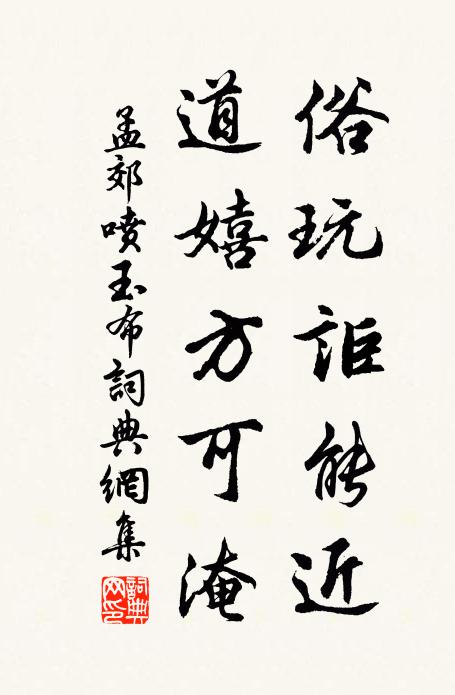 俗玩詎能近
道嬉方可淹
孟郊噴玉布詞典網集
詞典網印